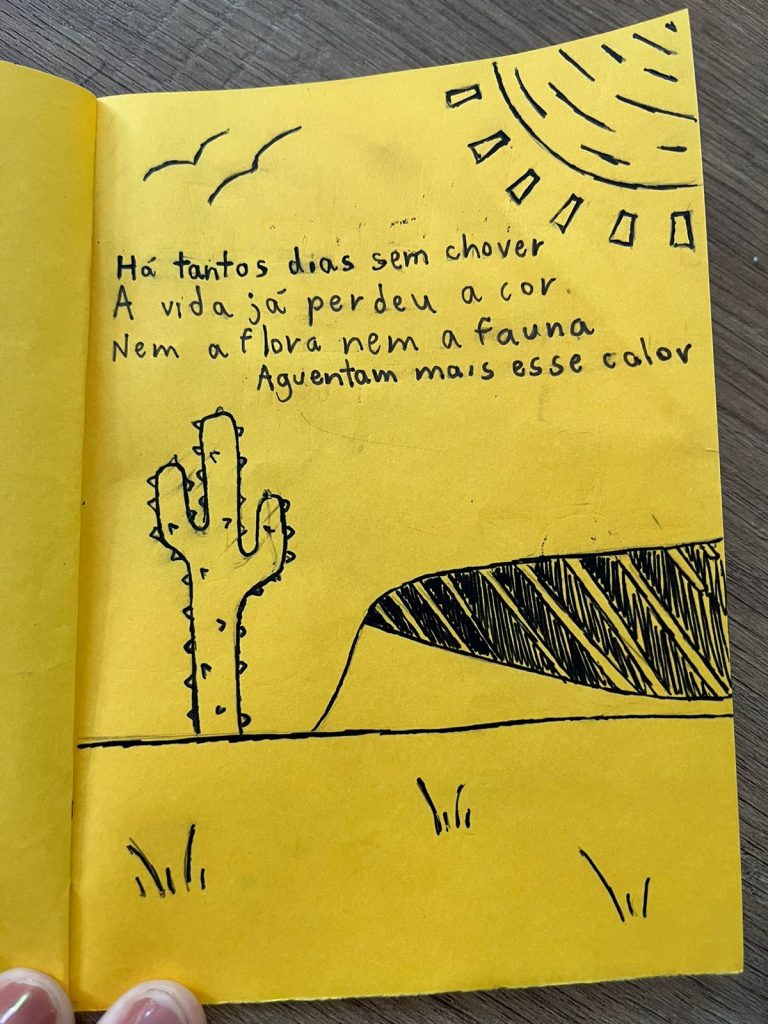 Há tantos dias sem chover
A vida já perdeu a cor.
Nem a flora nem a fauna
Aguentam mais esse calor